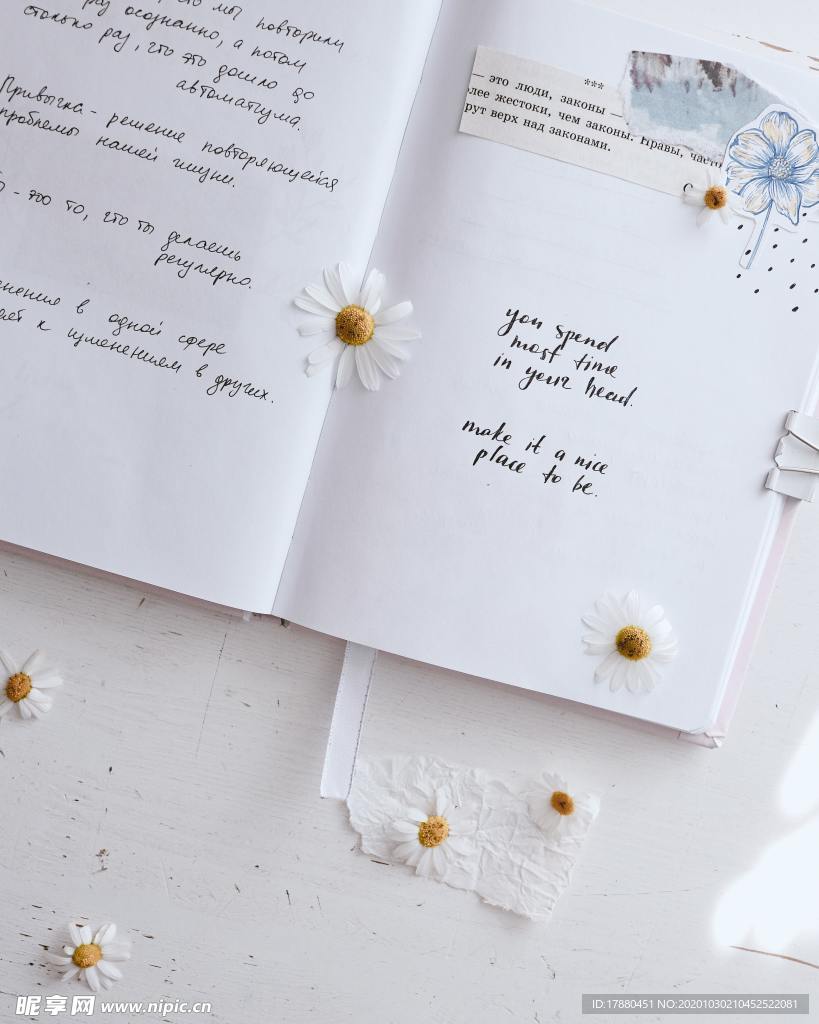 что мы повторили
раз осознанно, а потом
столько раз, что это дошло до
автоматизма.
Привычка - решение повторяющейся
проблемы нашей жизни.
- это то, что ты делаешь
регулярно.
в одной сфере
к изменениям в других.
***
— это люди, законы —
лее жестоки, чем законы. Нравы, часто
рут верх над законами.
you spend
most time
in your head.
make it a nice
place to be.
昵享网 www.nipic.cn
ID:17880451 NO:20201030210452522081